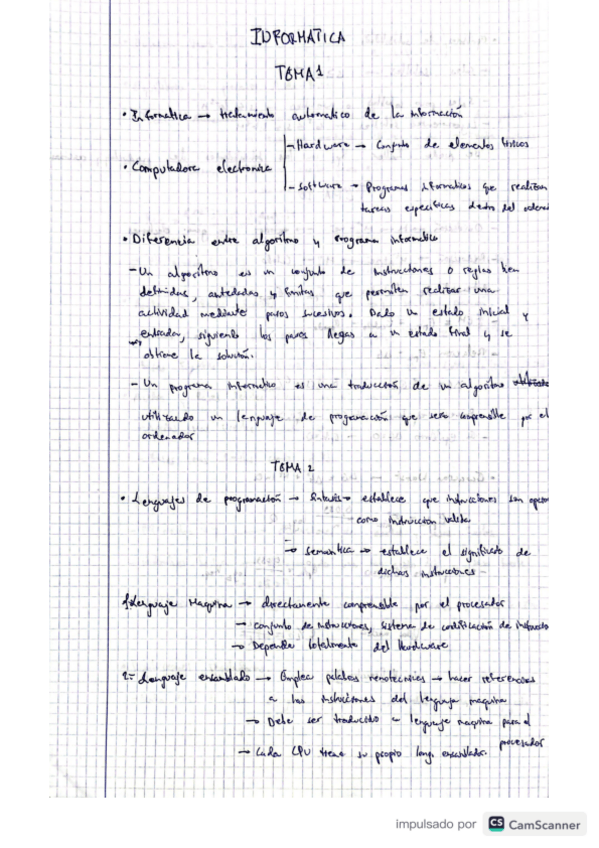 INFORMATICA
TEMA 1
• Informatica → tratamiento automatico de la información
- Hardware → Conjunto de elementos físicos
• Computadora electronica
- Software → Programas informaticos que realizan
tareas especificas dentro del
• Diferencia entre algoritmo y Programa informatico
- Un algoritmo es un conjunto de instrucciones o reglas bien
definidas, ordenadas y finitas que permiten realizar una
actividad mediante pasos sucesivos. Dado un estado inicial y
entrada, siguiendo los pasos llegas a un estado final y se
obtiene la solución.
- Un programa informatico es una traducción de un algoritmo
utilizando un lenguaje de programación que sera comprensible por el
ordenador
TEMA 2
• Lenguajes de programación → Sintaxis → establece que instrucciones son
como instrucción valida
→ Semantica → establece el significado de
dichas instrucciones
Lenguaje Maquina → directamente comprensible por el procesador
→ conjunto de instrucciones, sistema de codificación de
→ Depende totalmente del Hardware
2.- Lenguaje ensamblado → Emplea palabras → hacer referencias
a las instrucciones del lenguaje maquina
→ Debe ser traducido a lenguaje maquina para el
procesador
→ Cada CPU tiene su propio leng. ensamblador.
impulsado por CS CamScanner